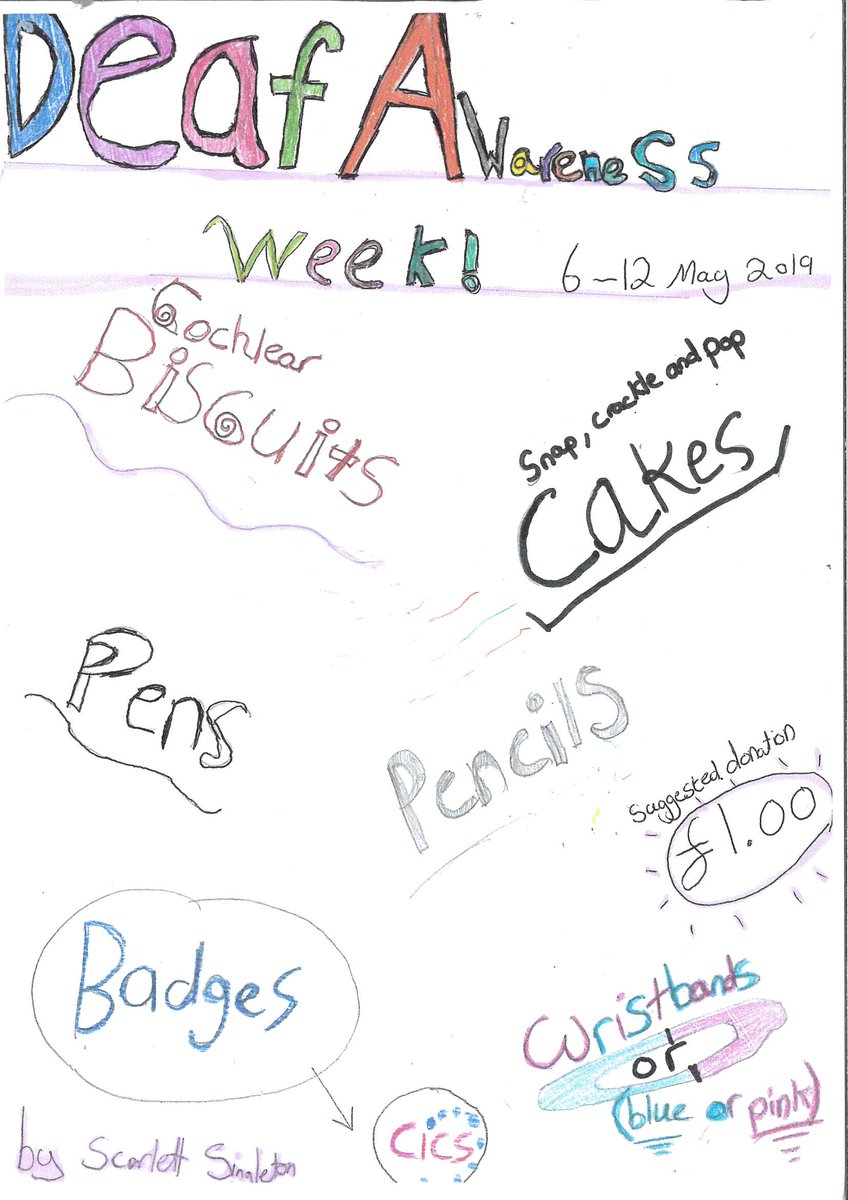 Deaf Awareness
Week!
6-12 May 2019
Cochlear
Biscuits
Snap, crackle and pop
Cakes
Pens
Pencils
Suggested donation
£1.00
Badges
Wristbands
or
(blue or pink)
CICS
by Scarlett Singleton